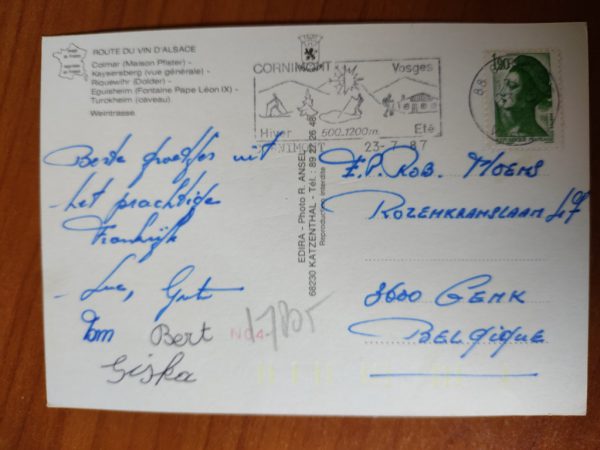 ROUTE DU VIN D'ALSACE
Colmar (Maison Pfister) -
Kaysersberg (vue générale) -
Riquewihr (Dolder) -
Eguisheim (Fontaine Pape Léon IX) -
Turckheim (caveau).
Weintrasse.
CORNIMONT Vosges
Hiver 500.1200m. Eté
23-7 87
88
1,90
Beste groetjes uit
het prachtige
Frankrijk
Luc,
Tom Bert
Giska
EDIRA - Photo R. ANSEL
68230 KATZENTHAL - Tél. : 89 27 26 48
Reproduction interdite
E.P. ROB. MOENS
ROZENKRANSLAAN 47
3600 GENK
BELGIQUE